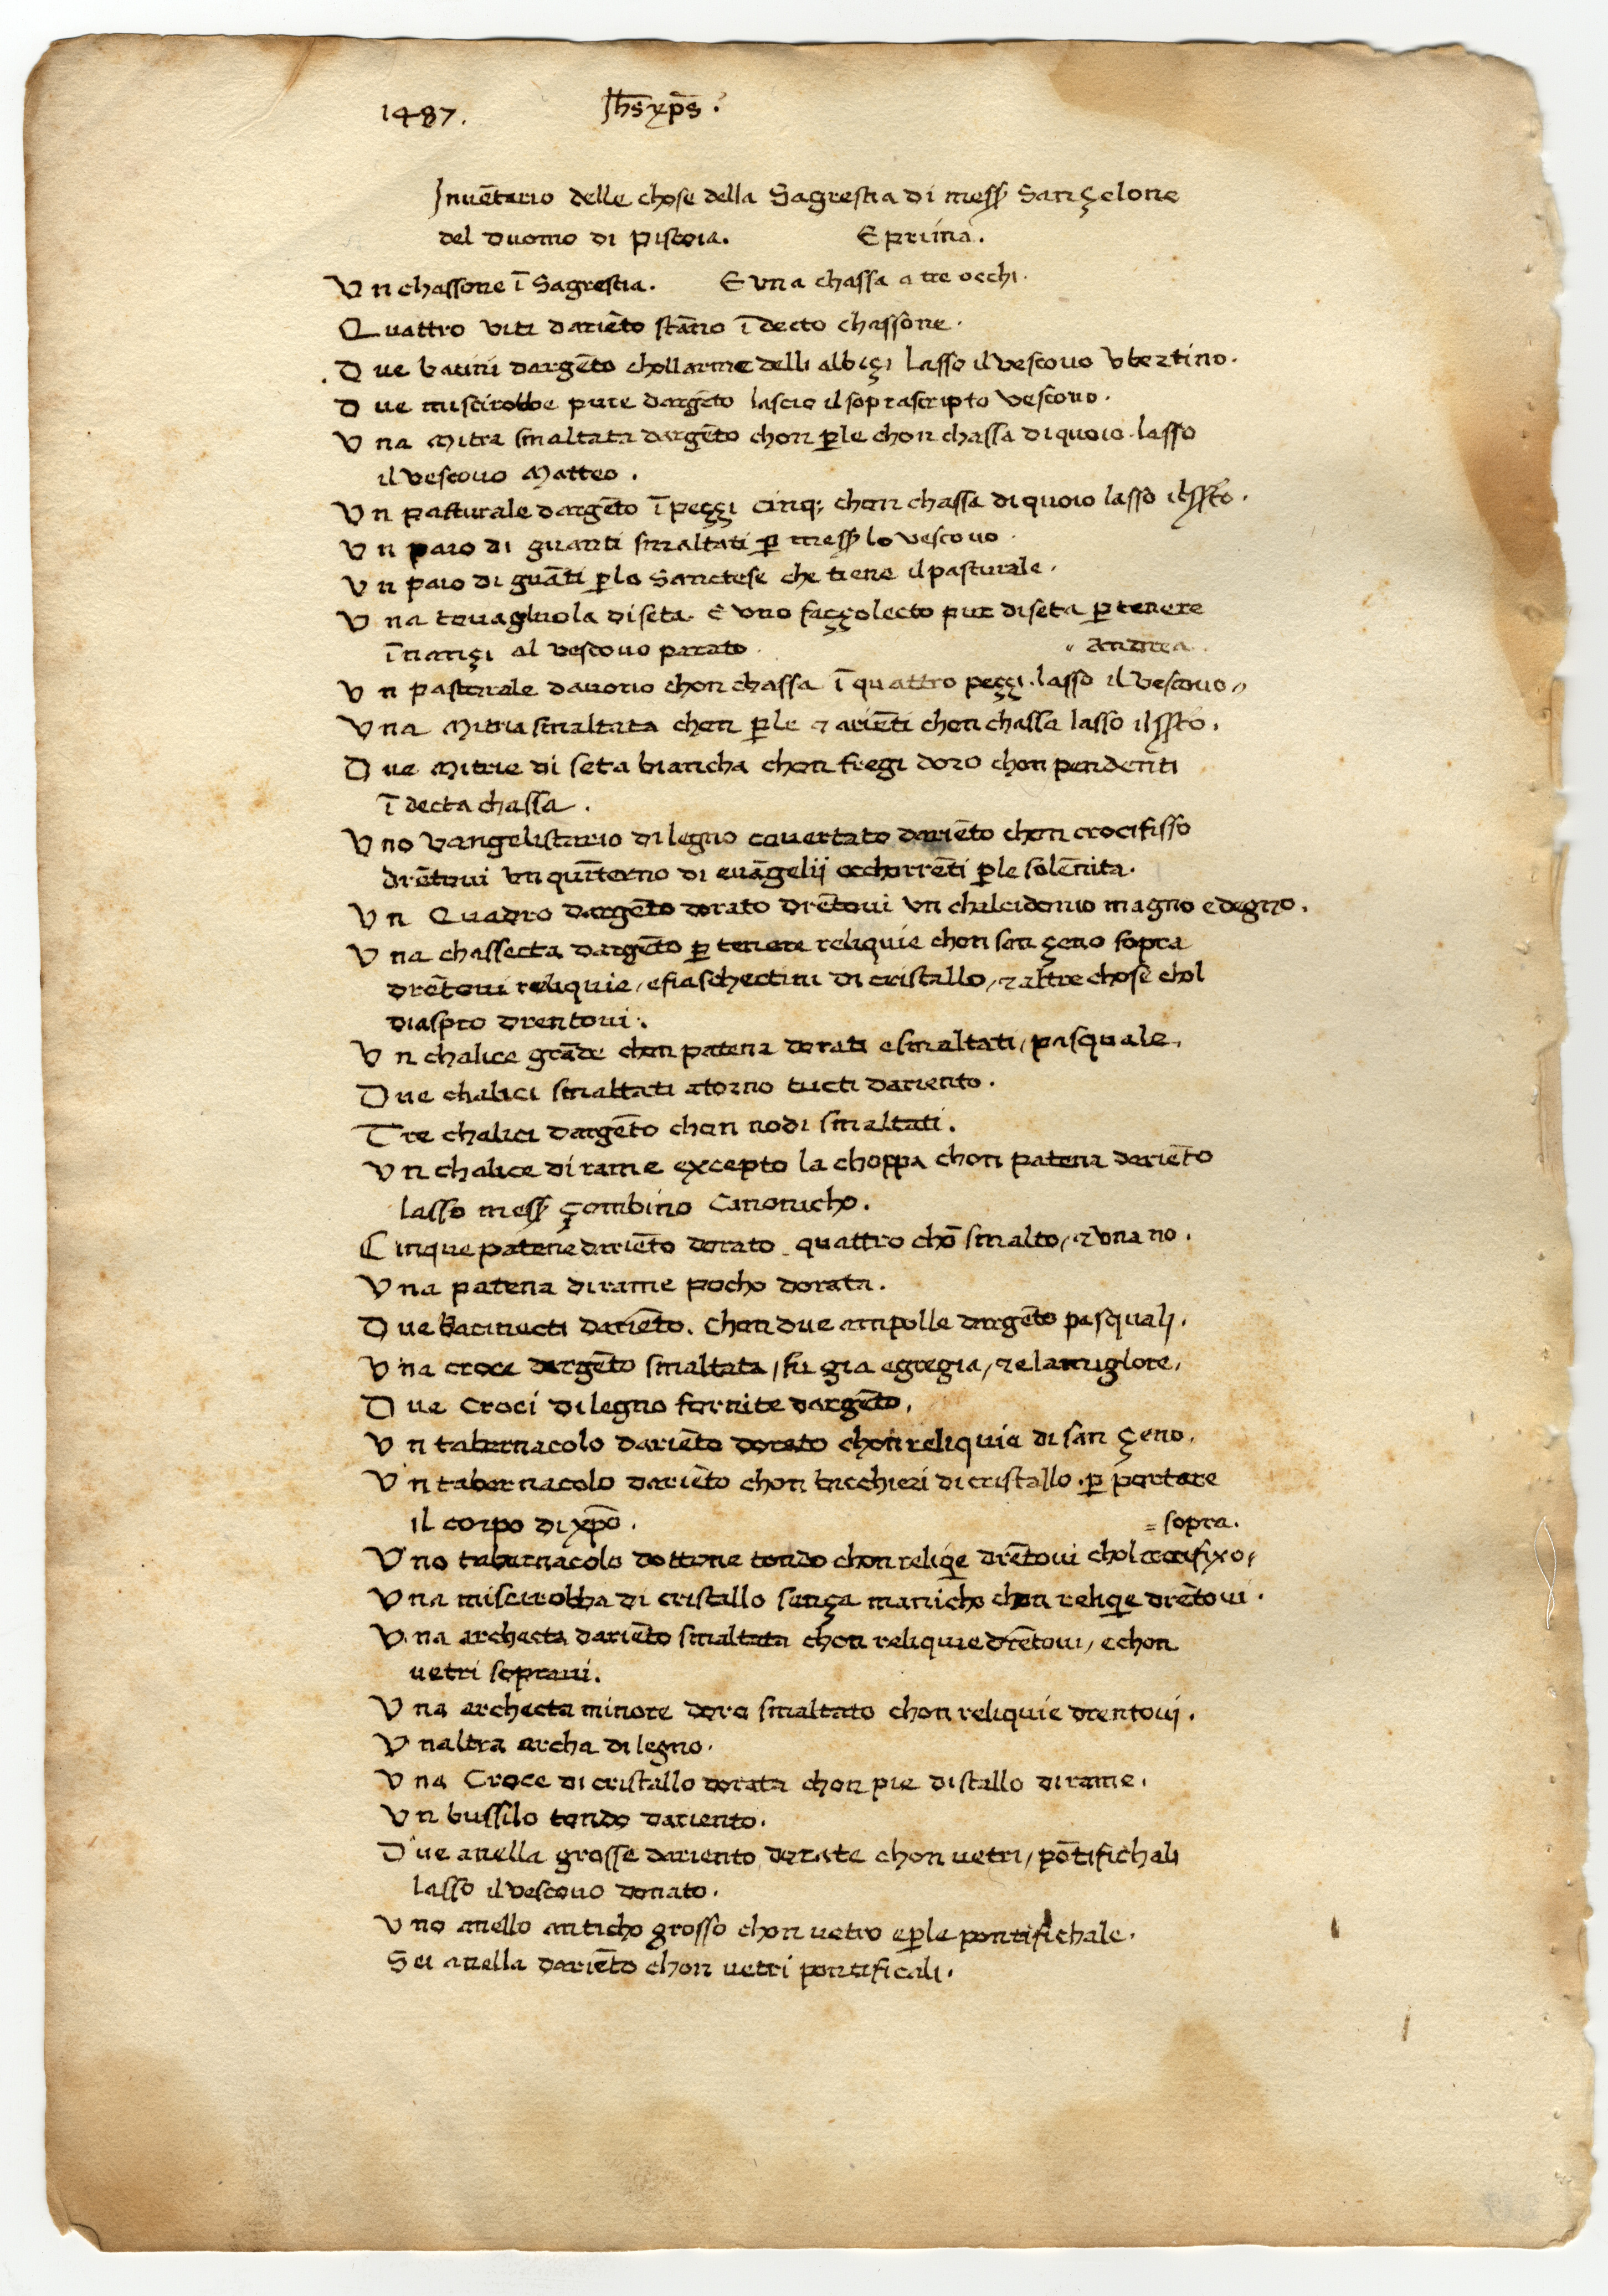 1487. Jh̅s xp̅s.
Inuē̅tario delle chose della Sagrestia di mess̨ Sançelone
del Duomo di Pistoia. E prima.
Vn chassone ī Sagrestia. E vna chassa a tre occhi.
Quattro viti dariēto stāno ī decto chassone.
Due bacini dargēto chollarme delli albiçi lasso il vescouo vbertino.
Due miscirobbe pure dargēto lascio il soprascripto vescouo.
Vna Mitra smaltata dargēto chon ꝑle chon chassa di quoio. lasso
il vescouo Matteo.
Vn pasturale dargēto ī peççi cinq; chon chassa di quoio lasso il sſto.
Vn paio di guanti smaltati ꝑ mess̨ lo vescouo.
Vn paio di guāti ꝑlo Sanctese che tiene il pasturale.
Vna touagliuola di seta. E vno façolecto pur di seta ꝑ tenere
īnançi al vescouo parato. " Andrea.
Vn pasturale dauorio chon chassa ī quattro peççi. lasso il Vescouo"
Vna Mitria smaltata chon ꝑle & ariēti chon chassa lasso il sſto.
Due Mitrie di seta biancha chon fregi doro chon pendenti
ī decta chassa.
Vno Vangelistario di legno couertato dariēto chon crocifisso
drētoui vn quīterno di euāgelii occhorrēti ꝑle solēnita.
Vn Quadro dargēto dorato drētoui vn chalcidonio magno e degno.
Vna chassecta dargēto ꝑ tenere reliquie chon san çeno sopra
drētoui reliquie, e fiaschectini di cristallo, & altre chose chol
diaspro drentoui.
Vn chalice grāde chon patena dorati e smaltati, pasquale.
Due chalici smaltati atorno tucti dariento.
Tre chalici dargēto chon nodi smaltati.
Vn chalice di rame excepto la choppa chon patena dariēto
lasso mess̨ çombino Canonicho.
Cinque patene dariēto dorato quattro chō smalto, & vna no.
Vna patena di rame pocho dorata.
Due bacinecti dariēto. chon due ampolle dargēto pasquali.
Vna croce dargēto smaltata, fu gia egregia, & e la miglore.
Due Croci di legno fornite dargēto.
Vn tabernacolo dariēto dorato chon reliquie di san çeno.
Vn tabernacolo dariēto chon bicchieri di cristallo. ꝑ portare
il corpo di xp̅o. = sopra.
Vno tabernacolo dottone tondo chon reliq̨e drētoui chol crocifixo,
Vna miscirobba di cristallo sança manicho chon reliq̨e drētoui.
Vna archecta dariēto smaltata chon reliquie drētoui, e chon
uetri soprani.
Vna archecta minore doro smaltato chon reliquie drentoui.
Vnaltra archa di legno.
Vna Croce di cristallo dorata chon pie distallo di rame.
Vn bussilo tondo dariento.
Due anella grosse dariento dorate chon uetri, pōtifichali
lasso il vescouo donato.
Vno anello anticho grosso chon uetro e ꝑle pontifichale.
Sei anella dariēto chon uetri pontificali.